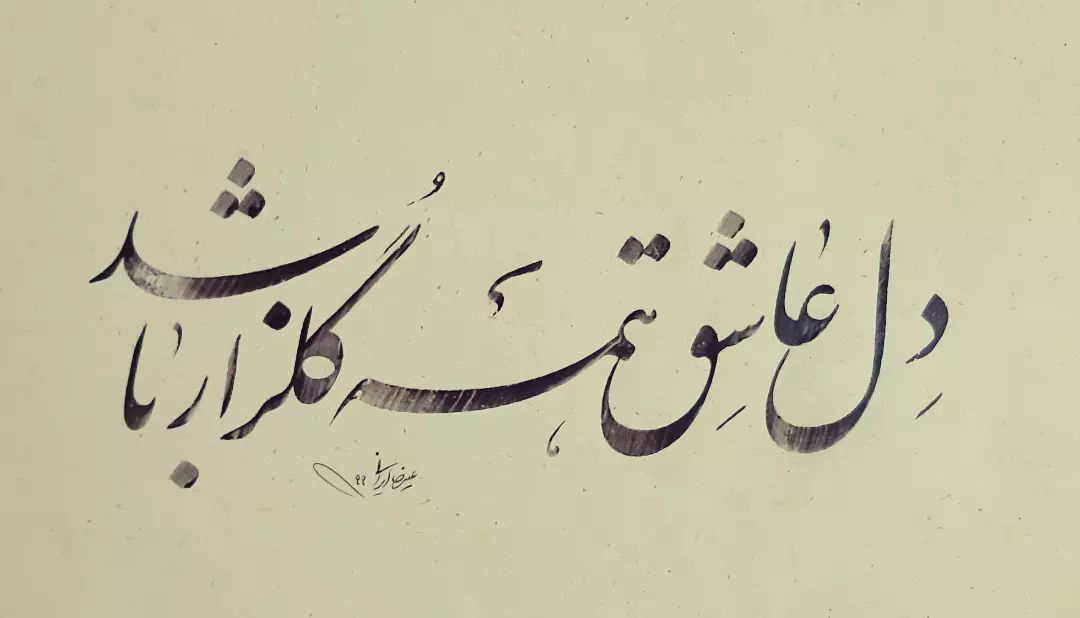 دِل عاشِق همه گُلزار باشد
علیرضا ایرانی ۹۹